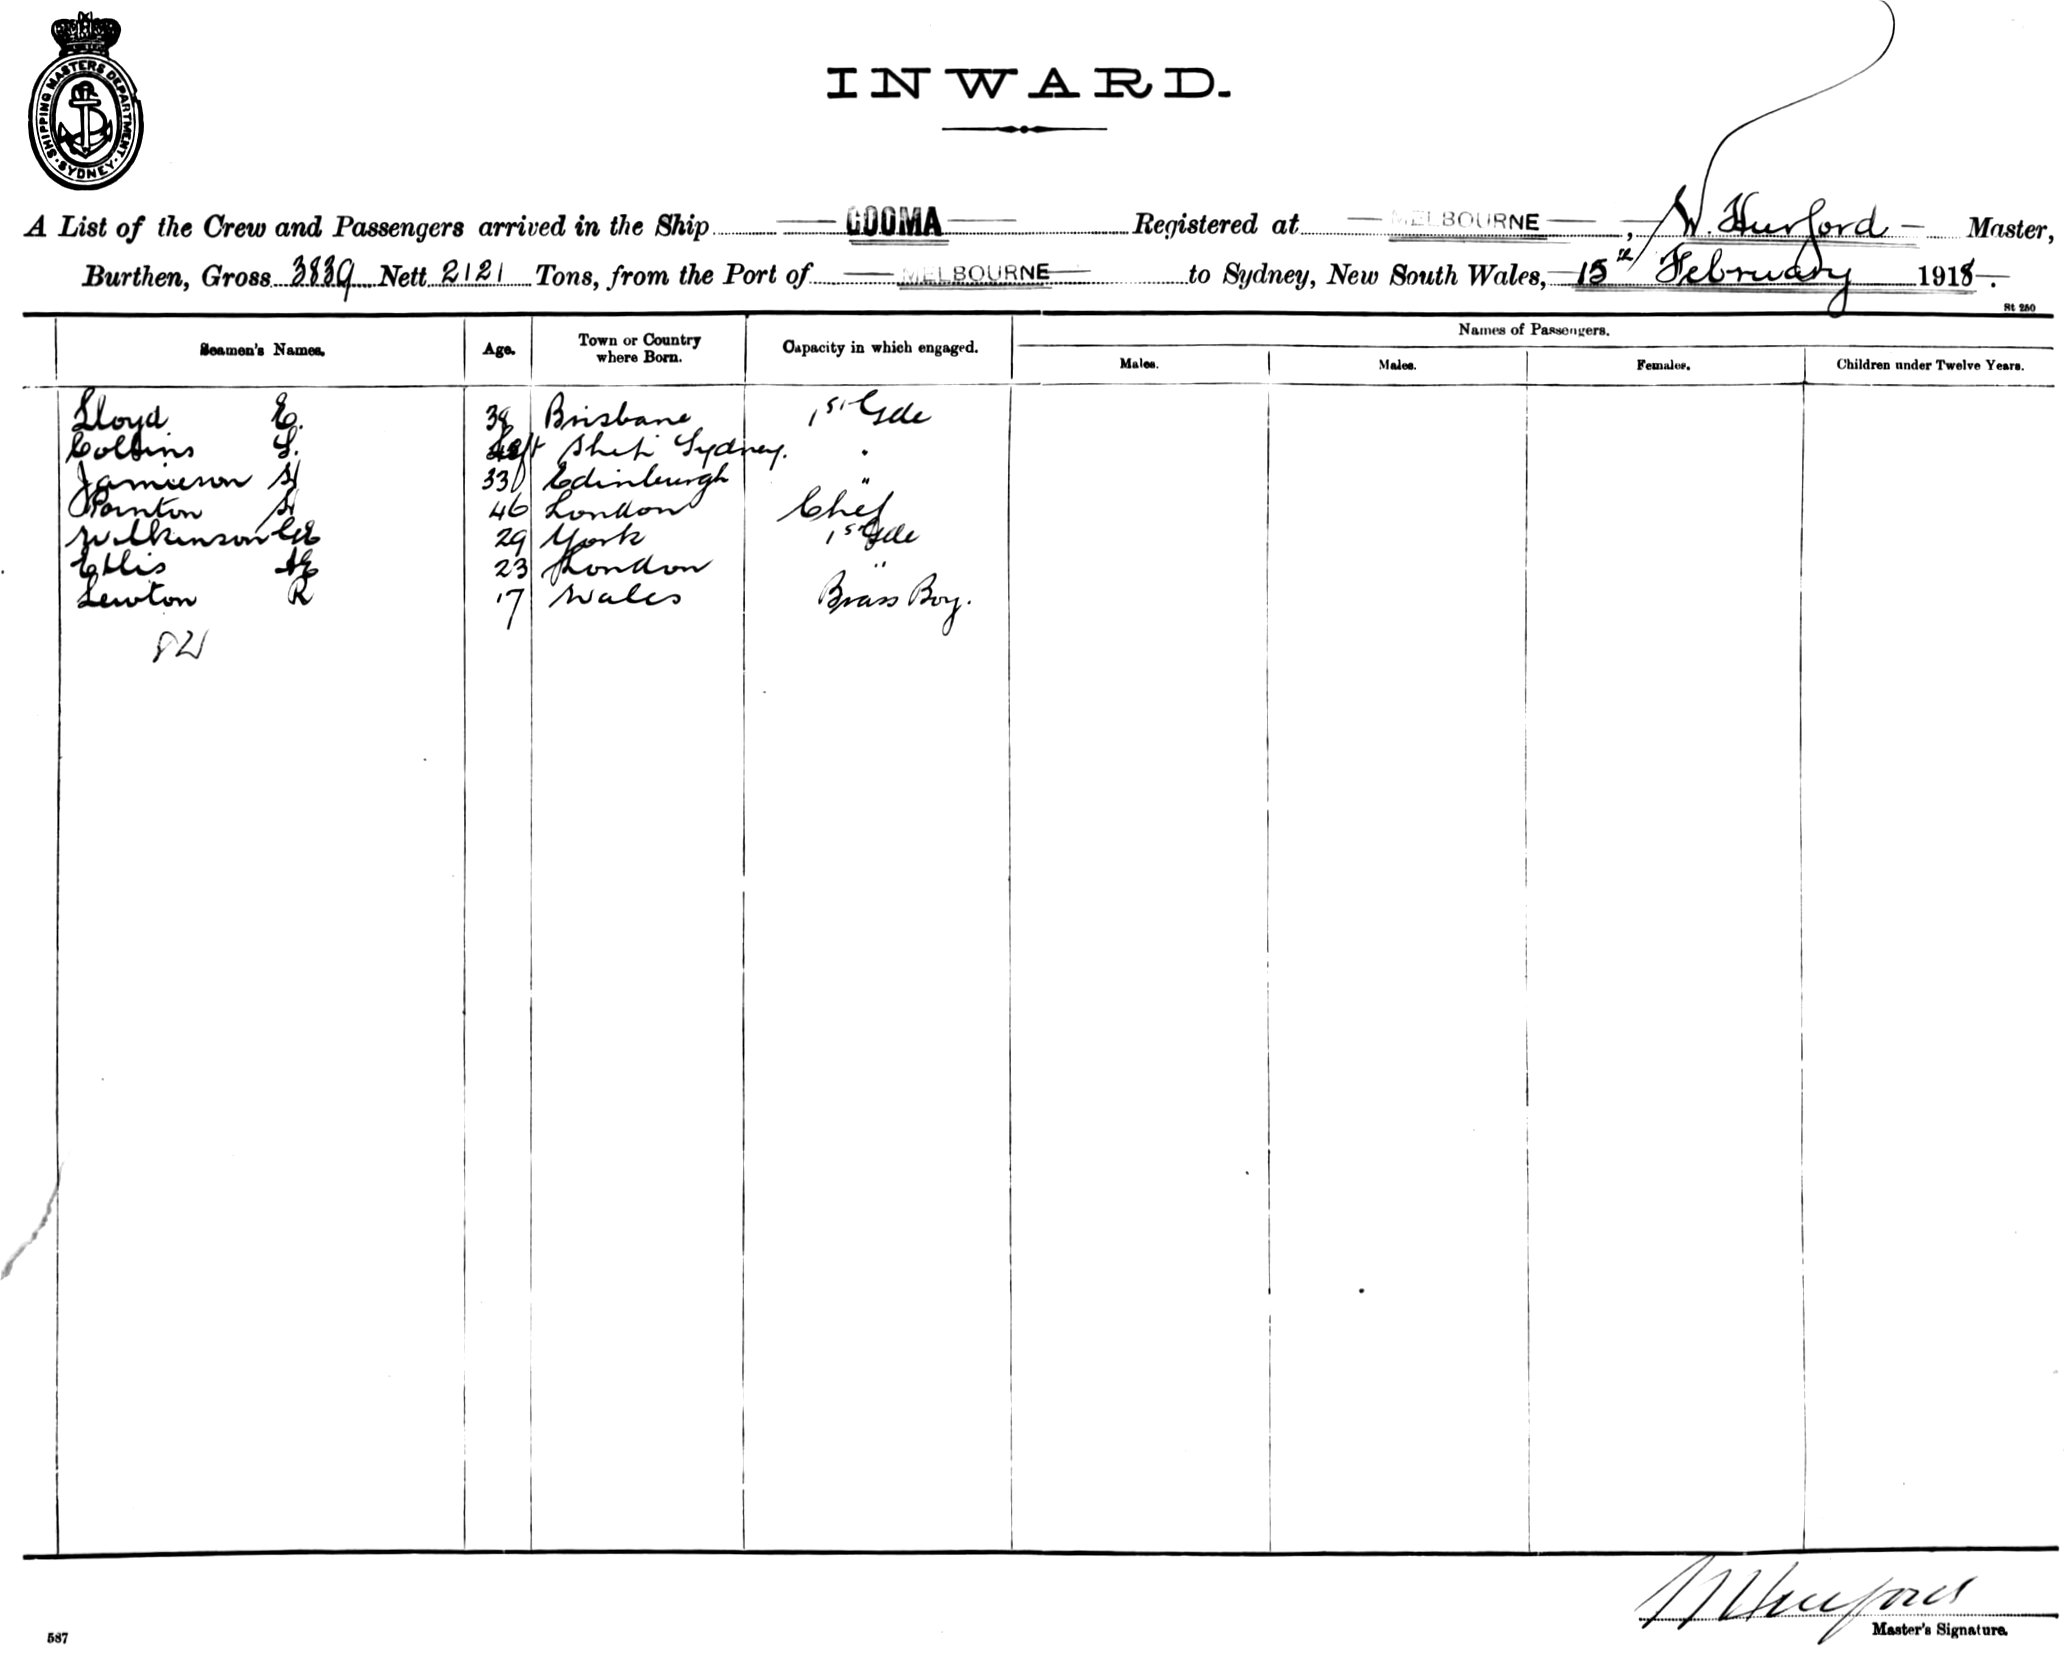 SHIPPING MASTERS DEPARTMENT · SYDNEY ·
INWARD.
A List of the Crew and Passengers arrived in the Ship COOMA Registered at MELBOURNE, W. Hurford Master,
Burthen, Gross 3839 Nett 2121 Tons, from the Port of MELBOURNE to Sydney, New South Wales, 15th February 1918.
St 250
Seamen's Names. Age. Town or Country where Born. Capacity in which engaged. Names of Passengers.
Males. Males. Females. Children under Twelve Years.
Lloyd E. 38 Brisbane 1st Gde
Collins L. Left Ship Sydney. "
Jamieson H 33 Edinburgh "
Pointon H 46 London Chef
Wilkinson CE 29 York 1st Gde
Ellis AE 23 London "
Lewton R 17 Wales Brass Boy.
82
W Hurford
Master's Signature.
587